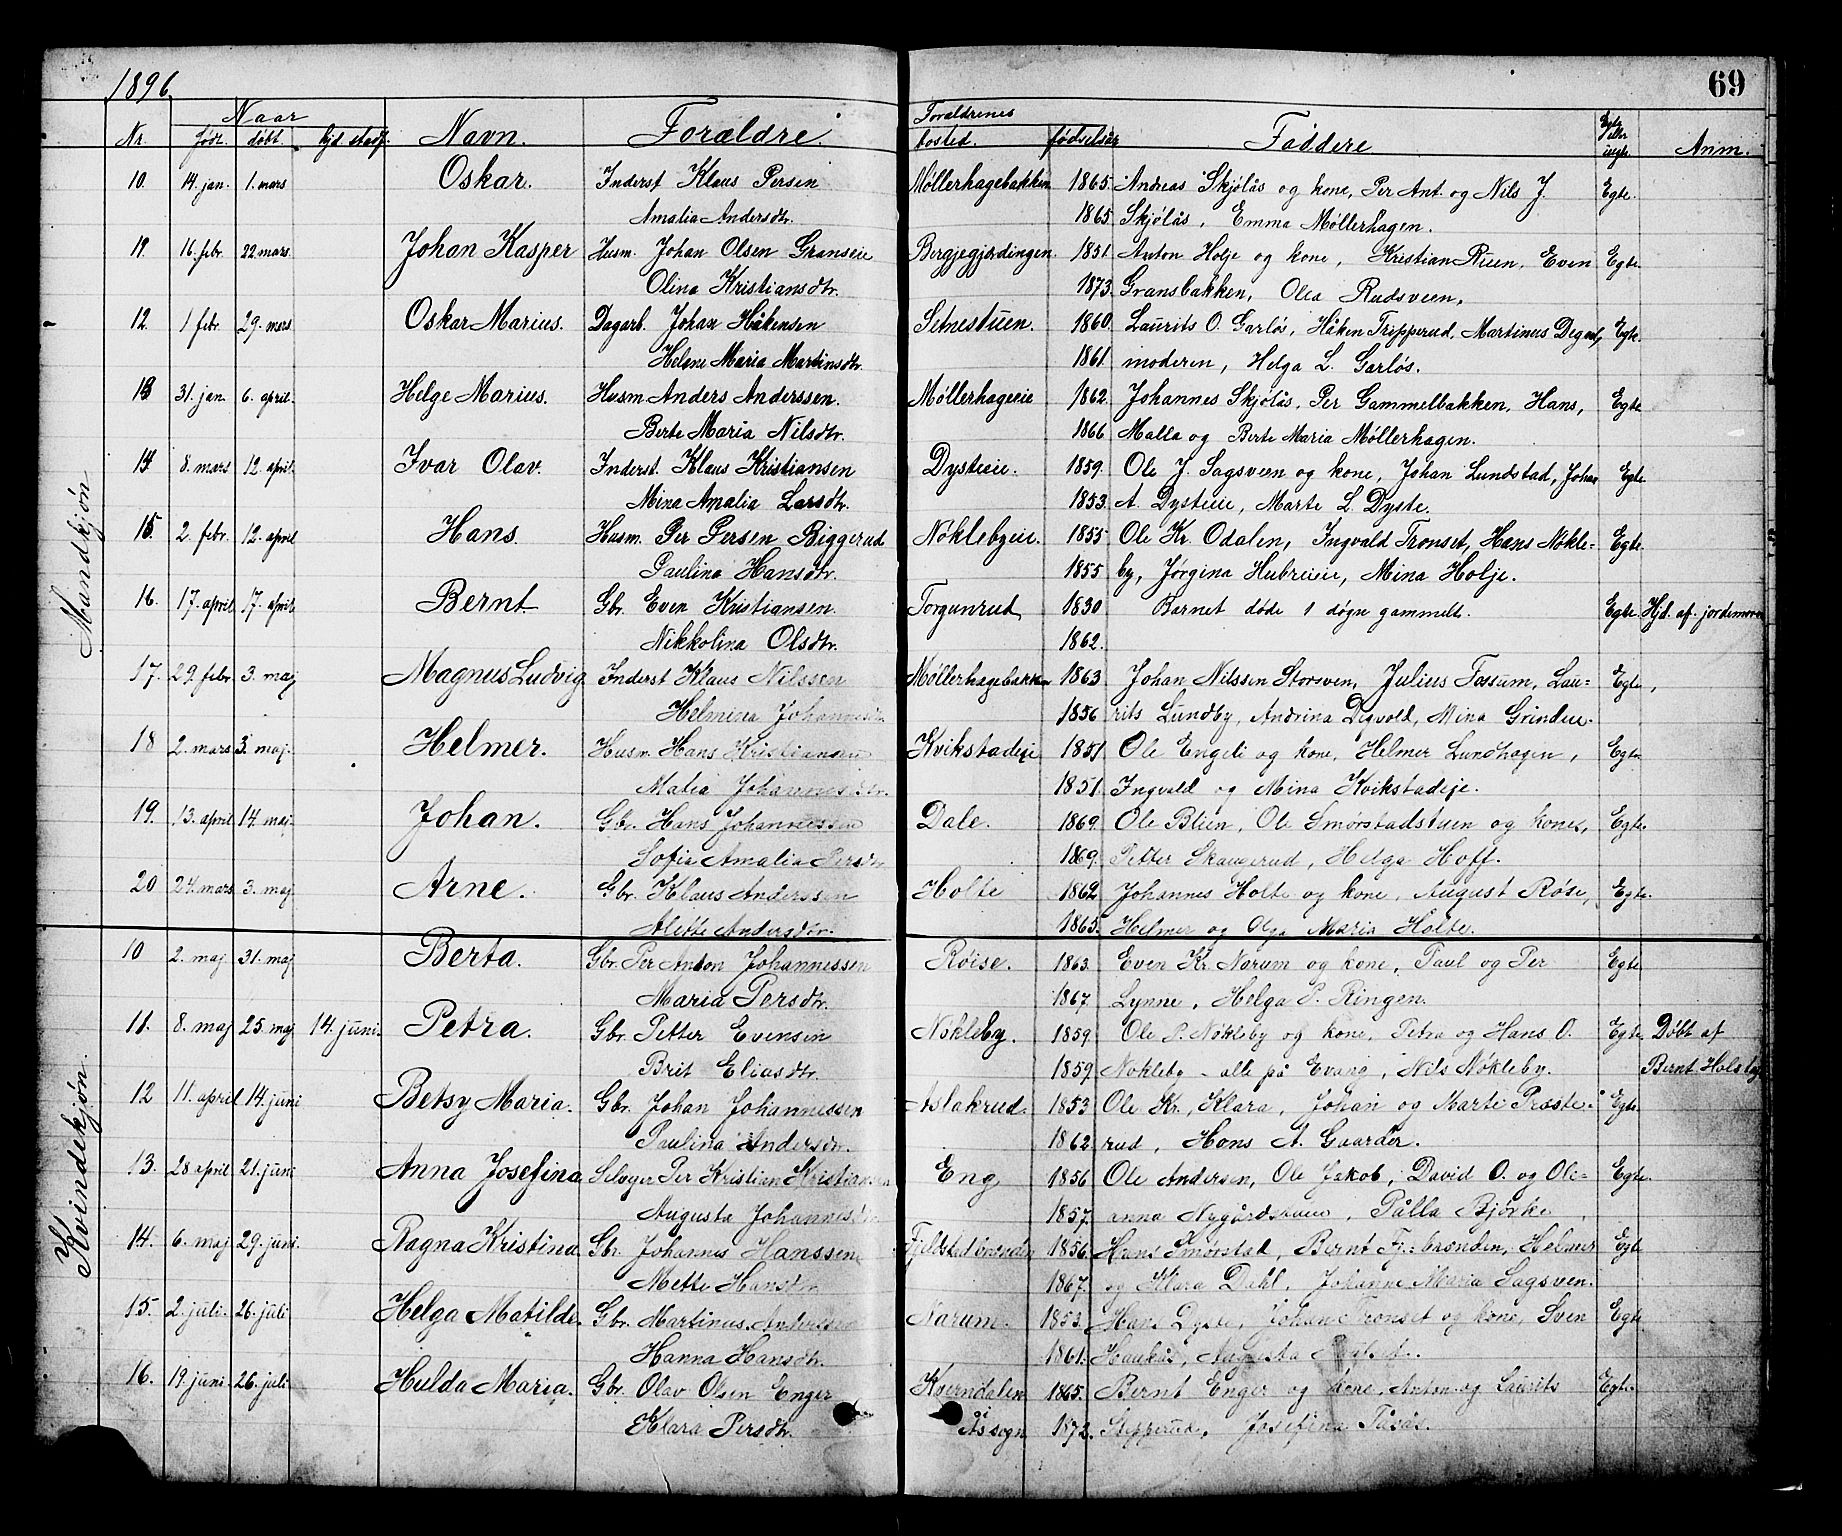 1896
69
Naar
Forældrenes
Nr. født. døbt. hjd. stadf. Navn. Forældre. bosted. fødselsår Faddere Egte eller uegte Anm.
Mandkjøn
10. 14. jan. 1. mars Oskar. Inderst Klaus Persen Møllerhagebakken 1865. Andreas Skjølås og kone, Per Ant. og Nils J. Egte.
Amalia Andersdtr. 1865. Skjølås, Emma Møllerhagen.
11. 16. febr. 22. mars. Johan Kasper Husm. Johan Olsen Granseie Bergjegjordingen. 1851. Anton Holje og kone, Kristian Ruen, Even Egte.
Olina Kristiansdtr. 1873. Gransbakken, Olea Rudsveen.
12. 1 febr. 29. mars Oskar Marius. Dagarb. Johan Håkensen Setnestuen. 1860. Laurits O. Garløs, Håken Tripperud, Martinus Degnd, Egte.
Helene Maria Martinsdtr. 1861. moderen, Helga L. Garløs.
13. 31. jan. 6. april. Helge Marius. Husm Anders Anderssen. Møllerhageeie 1862. Johannes Skjølås, Per Gammelbakken, Hans, Egte.
Berte Maria Nilsdtr. 1866 Malla og Berte Maria Møllerhagen.
14. 8. mars 12. april. Ivar Olav. Inderst. Klaus Kristiansen Dysteeie. 1859. Ole J. Sagsveen og kone, Johan Lundstad, Johan Egte.
Mina Amalia Larsdtr. 1853. A. Dysteeie, Marte L. Dyste.
15. 2. febr. 12. april Hans. Husm. Per Persen Biggerud Nøklebyeie. 1855 Ole Kr. Odalen, Ingvald Tronset, Hans Nøkle- Egte.
Paulina Hansdtr. 1855 by, Jørgina Hubreeie, Mina Holje.
16. 17. april 17. april Bernt Gbr. Even Kristiansen. Torgunrud 1830 Barnet døde 1 døgn gammelt. Egte. Hjd. af jordemoren
Nikkolina Olsdtr. 1862.
17. 29. febr. 3. maj Magnus Ludvig Inderst Klaus Nilssen Møllerhagebakken 1863 Johan Nilssen Storsven, Julius Fossum, Lau- Egte,
Helmina Johannesdtr. 1856 rits Lundby, Andrina Digvold, Mina Grindeie.
18 2. mars 3. maj. Helmer. Husm. Hans Kristiansen Kvikstadeie 1851. Ole Engeli og kone, Helmer Lundhagen, Egte
Malia Johannesdtr. 1851. Ingvald og Mina Kvikstadeie.
19. 13. april 14. maj. Johan. Gbr. Hans Johannessen Dale. 1869. Ole Blien, Ole Smørstadstuen og kones, Egte.
Sofie Amalia Persdtr 1869. Petter Skaugerud, Helga Hoff.
20 24. mars 3. maj Arne. Gbr. Klaus Anderssen Holte 1862 Johannes Holte og kone, August Røise, Egte.
Alette Andersdtr. 1865. Helmer og Olga Maria Holte.
Kvindekjøn.
10 2. maj 31. maj Berta. Gbr. Per Anton Johannessen Røise. 1863. Even Kr. Narum og kone, Paul og Per Egte
Maria Persdtr. 1867. Lynne, Helga P. Ringen.
11. 8. maj 25. maj 14. juni. Petra. Gbr. Petter Evensen Nøkleby. 1859. Ole P. Nøkleby og kone, Petra og Hans O. Egte. Døbt af
Brit Eliasdtr. 1859. Nøkleby - alle på Evang, Nils Nøkleby. Bernt Holsby
12 11. april 14. juni Betsy Maria. Gbr. Johan Johannessen Aslakrud. 1853 Ole Kr., Klara, Johan og Marte Præste- Egte.
Paulina Andersdtr. 1862. rud, Hans A. Gaarder.
13. 28 april 21. juni Anna Josefina Selveger Per Kristian Kristiansen Eng 1856 Ole Andersen, Ole Jakob, David O. og Ole- Egte.
Augusta Johannesdtr. 1857. anna Nygårdstuen, Pålla Bjørke
14. 6. maj 29. juni. Ragna Kristina. Gbr. Johannes Hanssen Fjeldstadbrænden 1856. Hans Smørstad, Bernt Fj.-brænden, Helmer Egte
Mette Hansdtr. 1867. og Klara Dahl, Johanne Maria Sagsven.
15. 2. juli. 26. juli Helga Matilde. Gbr. Martinus Anderssen Narum. 1853. Hans Dyste, Johan Tronset og kone, Sven Egte
Hanna Hansdtr. 1861. Haukås, Augusta
16. 19. juni. 26. juli Hulda Maria. Gbr. Olav Olsen Enger Kverndalen 1865. Bernt Enger og kone, Anton og Laurits Egte.
Klara Persdtr. Åssogn 1872. Stepperud, Josefina Tusås.